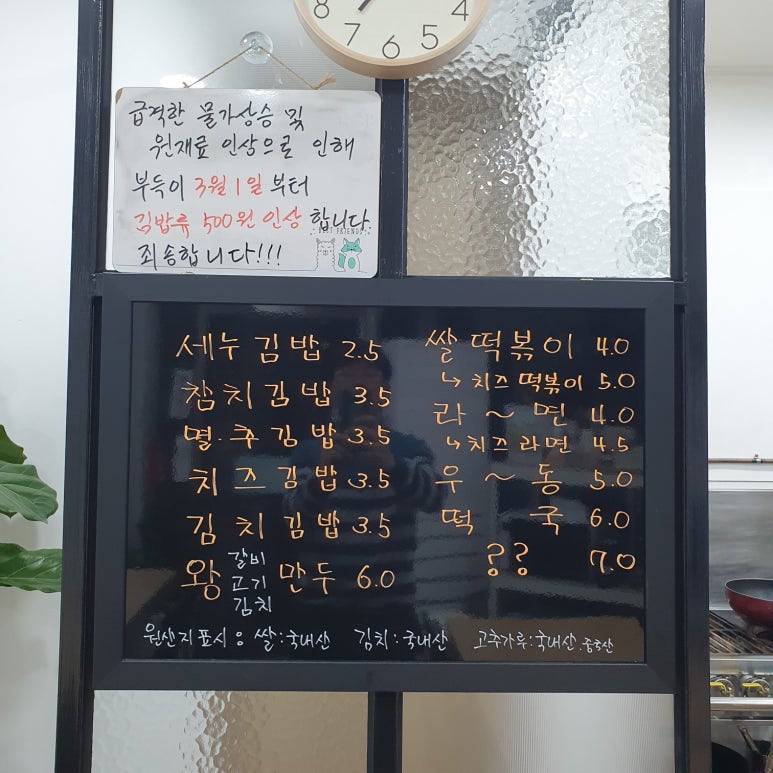 8
7
6
5
4
급격한 물가상승 및
원재료 인상으로 인해
부득이 3월 1일 부터
김밥류 500원 인상 합니다
BEST FRIENDS
죄송합니다!!!
세누김밥 2.5
참치김밥 3.5
멸.추김밥 3.5
치즈김밥 3.5
김치김밥 3.5
왕 갈비 고기 김치 만두 6.0
쌀떡볶이 4.0
↳ 치즈 떡볶이 5.0
라~면 4.0
↳치즈 라면 4.5
우~동 5.0
떡국 6.0
?? 7.0
원산지표시 : 쌀:국내산 김치:국내산 고추가루:국내산.중국산